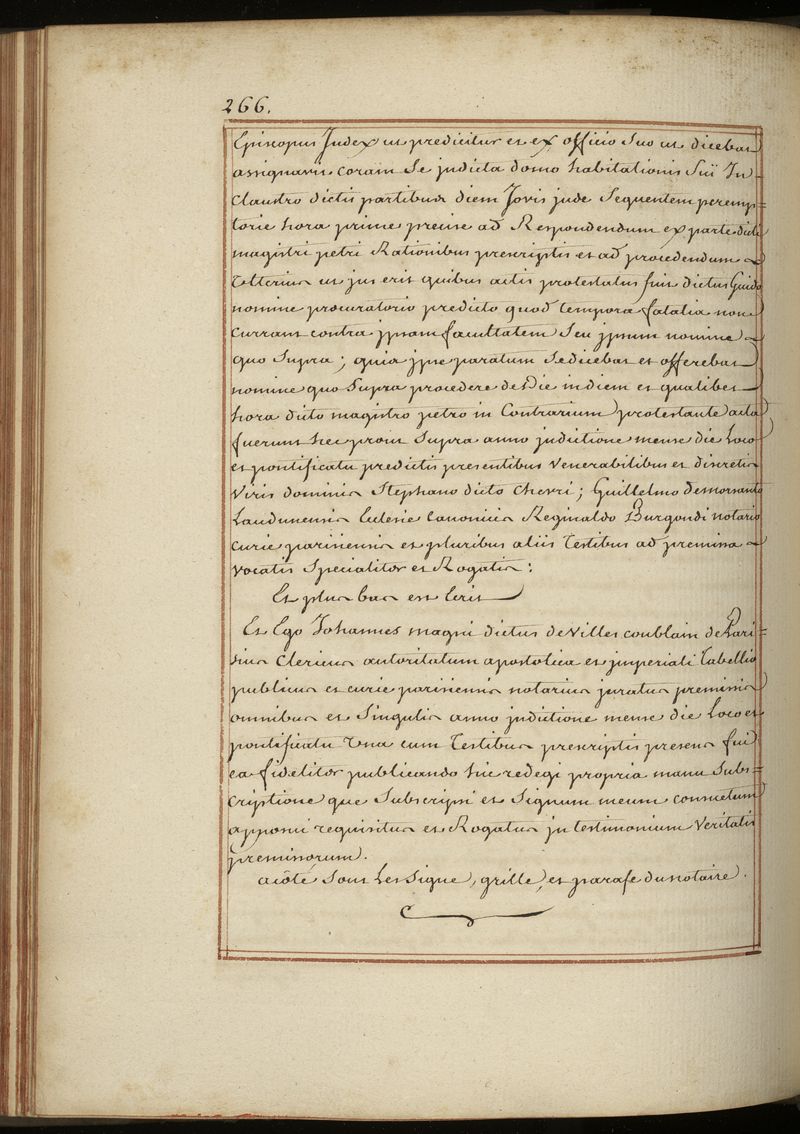 266.
Episcopus Judex ut predicitur et ex officio Suo ut dicebat
assignavit coram Se jndicta domo habitationis Suï In
Claustro dictis partibus diem Jovis jnde Sequentem peremp=
torie hora prime precise ad Respondendum ex parte dicti
magistri petri Rationibus prescriptis et ad procedendum
Ulterius ut jus erit quibus actis protestatus fuit dictus Guido
nomine procuratorio predicto quod tempora fatalia non
Currant contra jpsam facultatem Seu jpsum nomine
quo Supra; quia jpse paratum Se dicebat et offerebat
nomine quo Supra procedere de Die in diem et qualibet
hora dicto magistro petro in Contrarium protestante acta
fuerunt hec prout Supra anno jndictione mense die Loco
et pontificatu predictis presentibus Venerabilibus et discretis
Viris dominis Stephano dicto Chevri; Guillelmo de mornanto
Laudunensis Eclesie Canonicis Reginaldo Burgondi notario
Curie parisiensis et pluribus aliis Testibus ad premissa
Vocatis Specialiter et Rogatis:
Et plus bas est Ecrit
Et Ego Johannes magni dictus de Villes coublain de Pari=
sius Clericus autoritatum apostolica et jmperiali Tabellio
publicus et curie parisiensis notarius juratus premissis
omnibus et Singulis anno jndictione mense die Loco et
pontificatu Una cum Testibus prescriptis presens fui
ea fideliter publicando hic redegi propria manu Subs=
criptione que Subscripsi et Signum meum consuetum
apposui requisitus et Rogatus jn testimonium Veritatis
premissorum.
acôté Sont Les Signe, grille, et parafe du notaire.